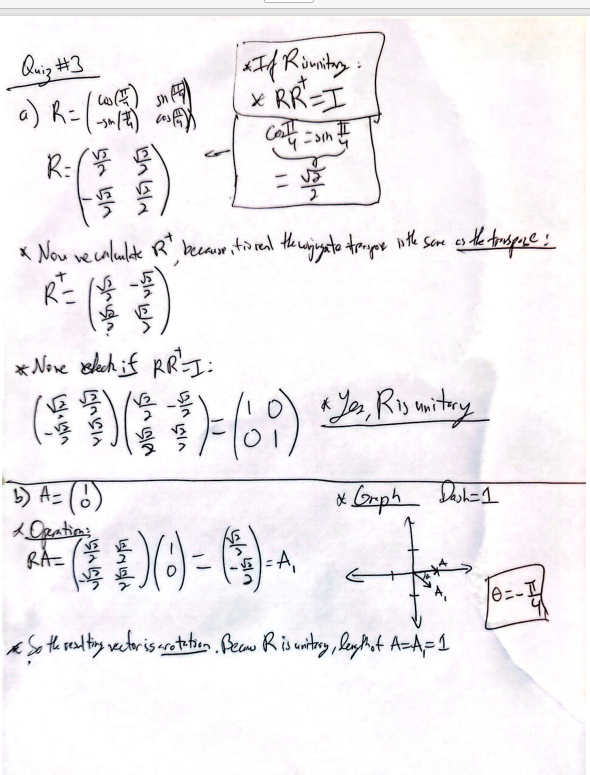 Quiz #3
a) R = ( cos(π/4) sin(π/4) )
( -sin(π/4) cos(π/4) )
* If R is unitary :
* RR† = I
cos π/4 = sin π/4
= √2/2
R = ( √2/2 √2/2 )
( -√2/2 √2/2 )
* Now we calculate R†, because it is real the conjugate transpose is the same as the transpose :
R† = ( √2/2 -√2/2 )
( √2/2 √2/2 )
* Now check if RR† = I :
( √2/2 √2/2 ) ( √2/2 -√2/2 ) = ( 1 0 )
( -√2/2 √2/2 ) ( √2/2 √2/2 ) ( 0 1 )
* Yes, R is unitary
b) A = ( 1 )
( 0 )
* Operation:
RA = ( √2/2 √2/2 ) ( 1 ) = ( √2/2 ) = A₁
( -√2/2 √2/2 ) ( 0 ) ( -√2/2 )
* Graph Dash=1
A
A₁
θ = -π/4
* So the resulting vector is a rotation. Because R is unitary, length of A = A₁ = 1